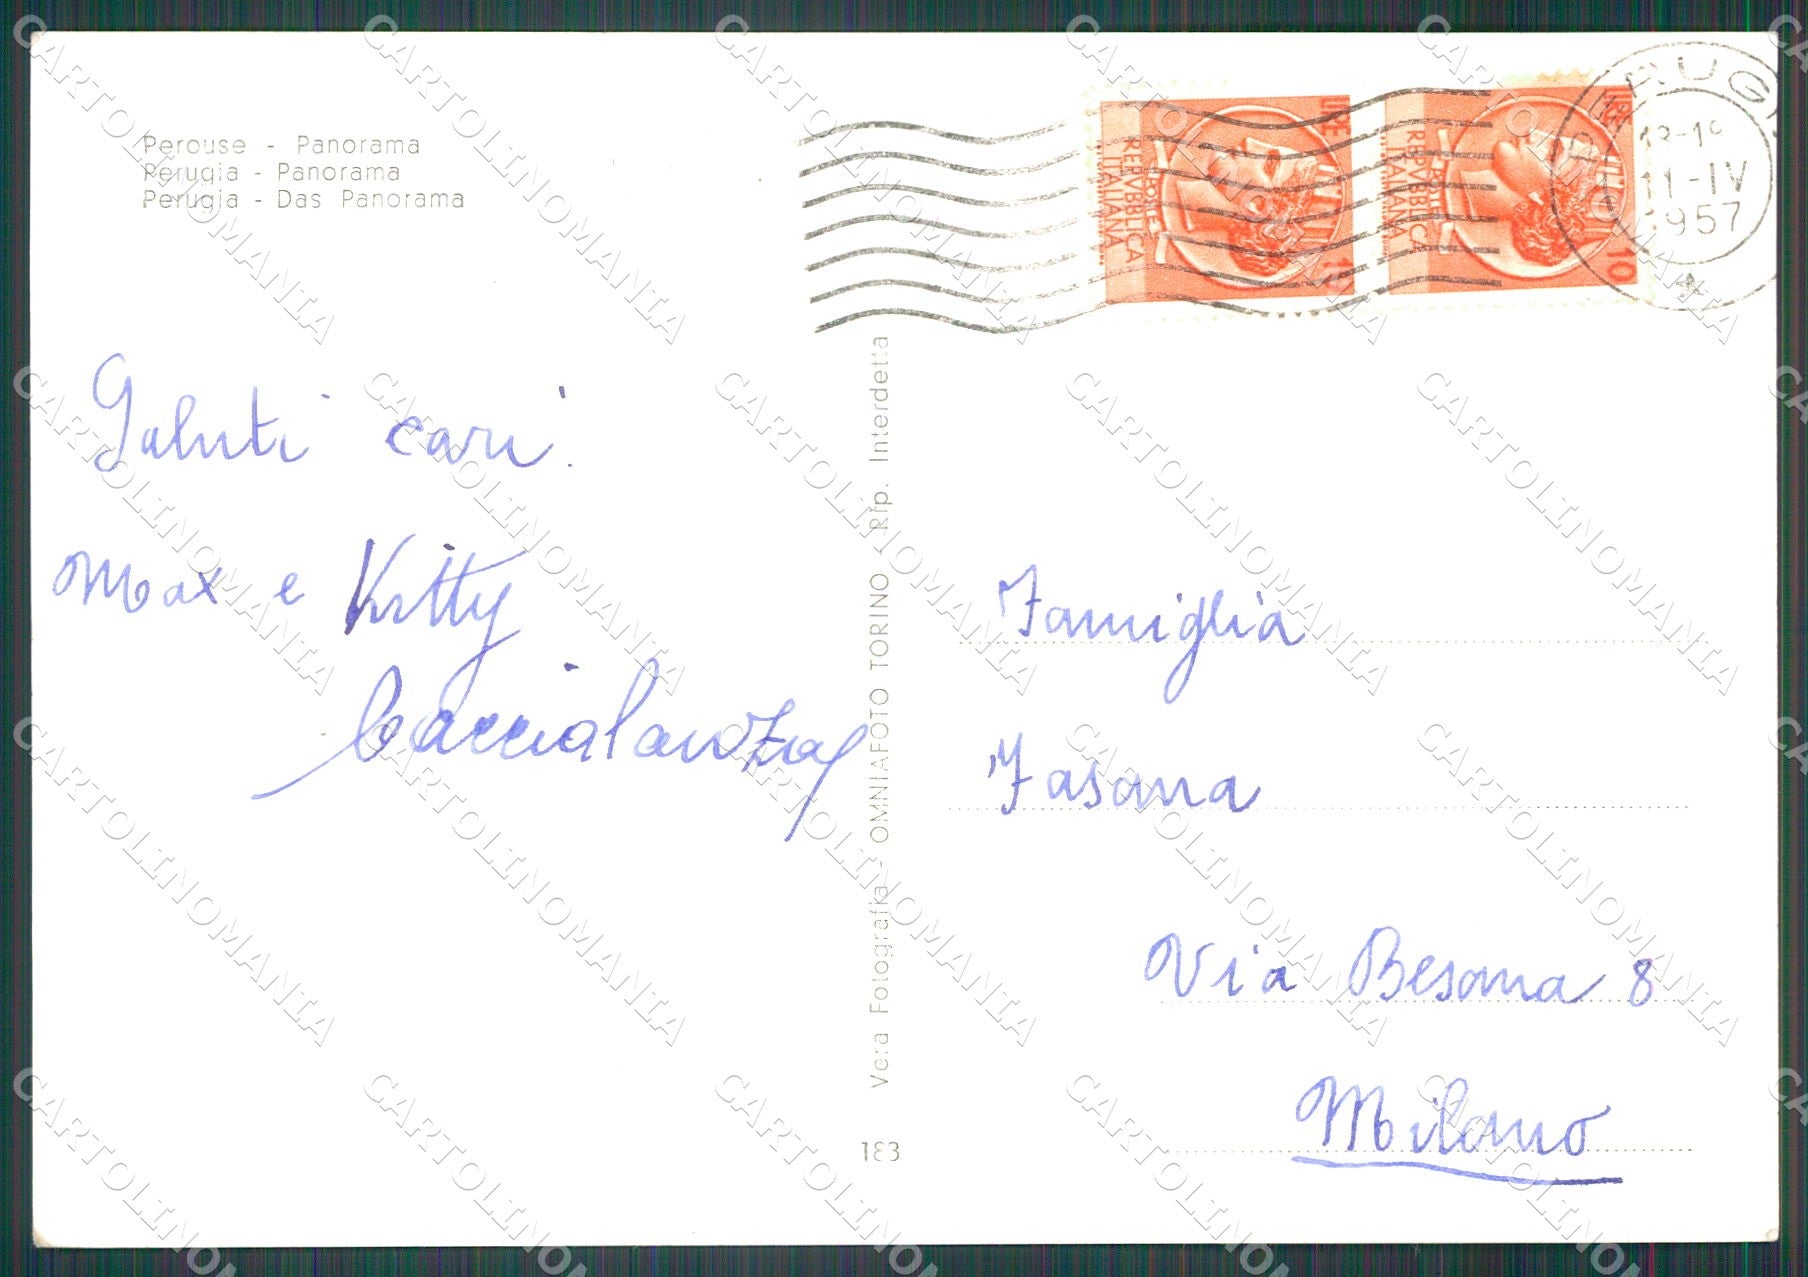 Perouse - Panorama
Perugia - Panorama
Perugia - Das Panorama
LIRE 10
REPVBBLICA
ITALIANA
LIRE 10
REPVBBLICA
ITALIANA
11-IV
1957
Saluti cari.
Max e Kitty
Caccialanza
Vera Fotografia - OMNIAFOTO TORINO - Rip. Interdetta
183
Famiglia
Fasana
Via Besana 8
Milano
CARTOLINOMANIA